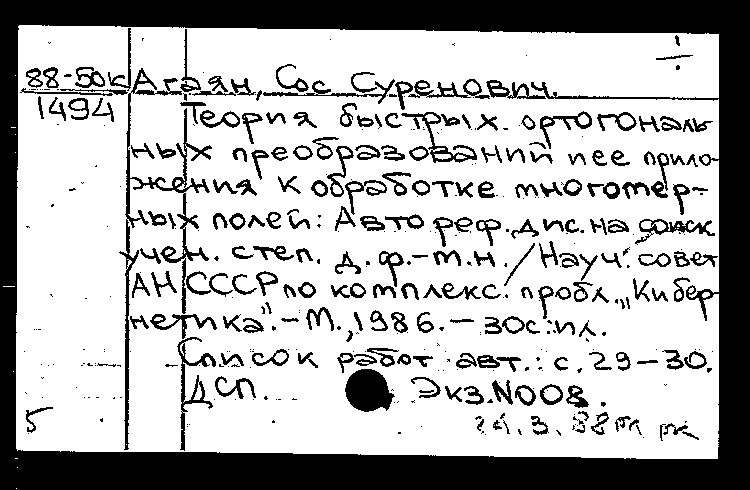 ÷
88-50к Агаян, Сос Суренович.
1494 Теория быстрых ортогональ
ных преобразований и ее прило-
жения к обработке многомер-
ных полей: Автореф. дис. на соиск
учен. степ. д.ф.-м.н. / Науч. совет
АН СССР по комплекс. пробл. „Кибер-
нетика". – М., 1986. – 30с.: ил.
Список работ авт.: с. 29–30.
ДСП. Экз. N008.
5 3. 88